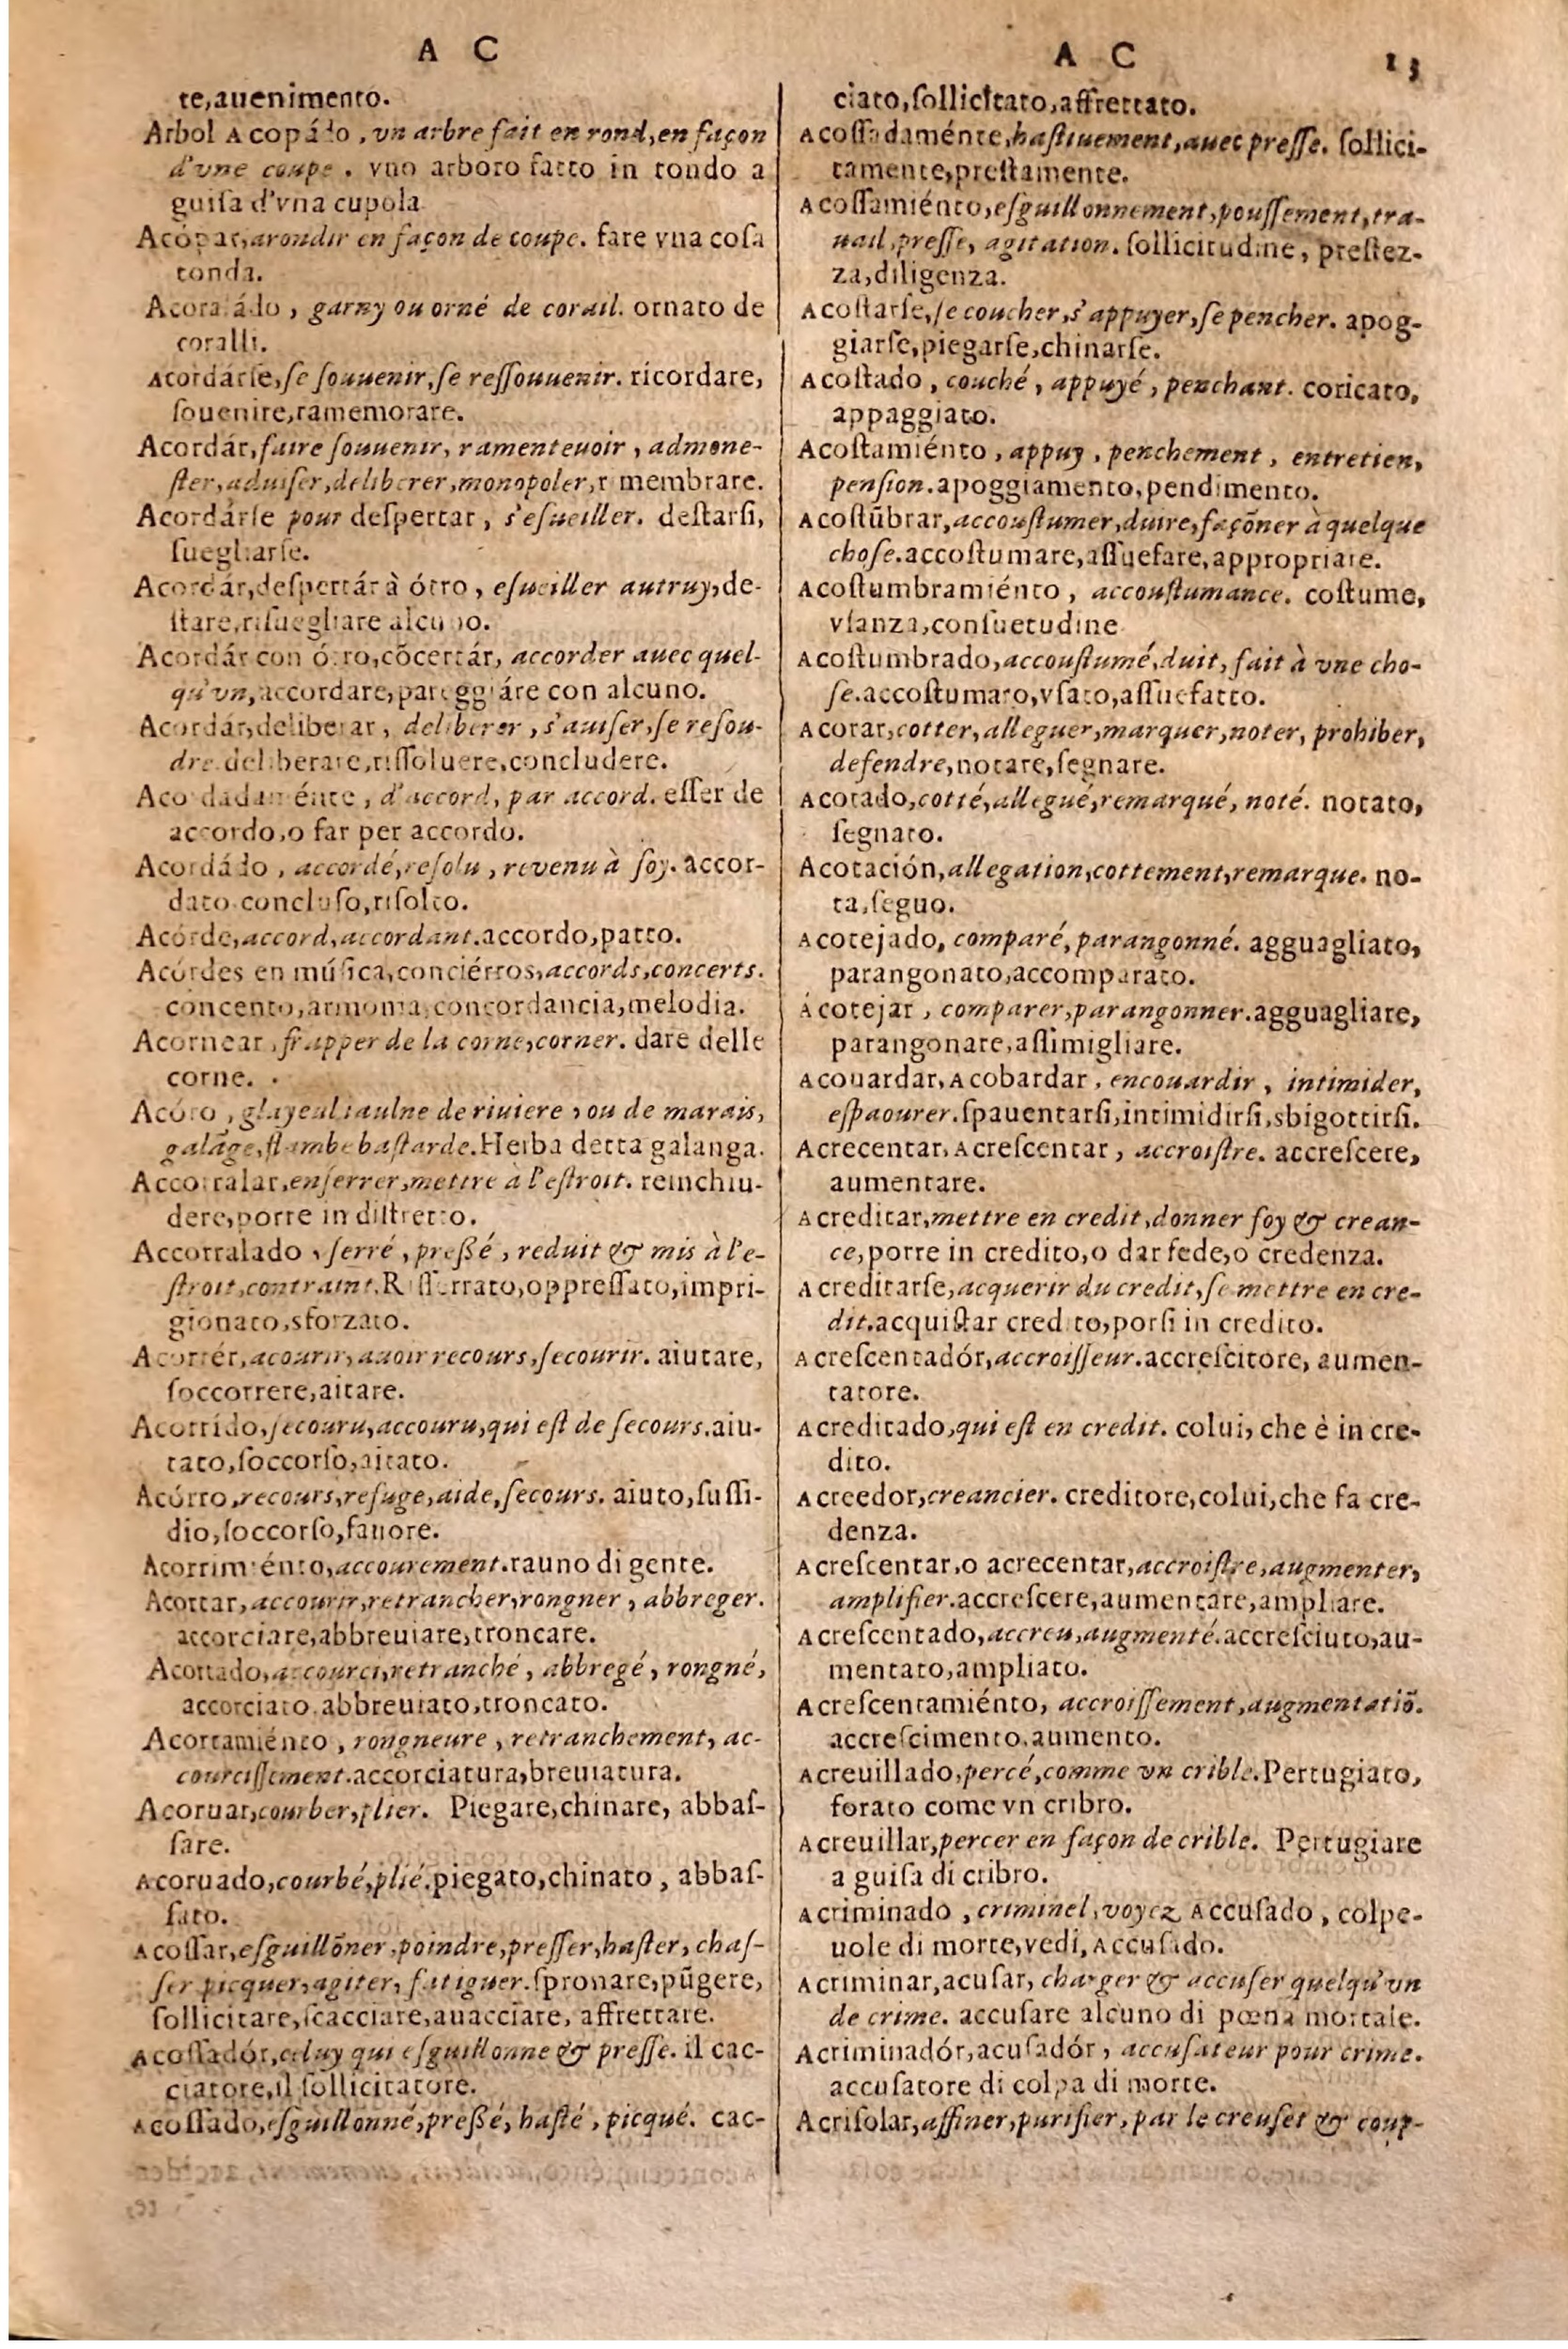 A C
te,auenimento.
Arbol Acopádo, vn arbre fait en rond, en façon
d'vne coupe. vno arboro fatto in tondo a
guisa d'vna cupola
Acópar, arondir en façon de coupe. fare vna cosa
tonda.
Acoraládo, garny ou orné de corail. ornato de
coralli.
Acordárse, se souuenir, se ressouuenir. ricordare,
souenire, ramemorare.
Acordár, faire souuenir, ramenteuoir, admone-
ster, aduiser, deliberer, monopoler, rimembrare.
Acordárse pour despertar, s'esueiller. destarsi,
suegliarse.
Acordár, despertár à ótro, esueiller autruy, de-
stare, risuegliare alcuno.
Acordár con ótro, cõcertár, accorder auec quel-
qu'vn, accordare, pareggiáre con alcuno.
Acordár, deliberar, deliberer, s'auiser, se resou-
dre. deliberare, rissoluere, concludere.
Acordadaménte, d'accord, par accord. esser de
accordo, o far per accordo.
Acordádo, accordé, resolu, revenu à soy. accor-
dato concluso, risolto.
Acórde, accord, accordant. accordo, patto.
Acórdes en música, conciértos, accords, concerts.
concento, armonia, concordancia, melodia.
Acornear, frapper de la corne, corner. dare delle
corne.
Acóro, glayeul iaulne de riuiere, ou de marais,
galãge, flambe bastarde. Herba detta galanga.
Accorralar, enserrer, mettre à l'estroit. reinchiu-
dere, porre in distretto.
Accorralado, serré, preßé, reduit & mis à l'e-
stroit, contraint. Risserrato, oppressato, impri-
gionato, sforzato.
Acorrér, acourir, auoir recours, secourir. aiutare,
soccorrere, aitare.
Acorrído, secouru, accouru, qui est de secours. aiu-
tato, soccorso, aitato.
Acórro, recours, refuge, aide, secours. aiuto, sussi-
dio, soccorso, fauore.
Acorrimiénto, accourement. rauno di gente.
Acortar, accourir, retrancher, rongner, abbreger.
accorciare, abbreuiare, troncare.
Acortado, accourci, retranché, abbregé, rongné,
accorciato. abbreuiato, troncato.
Acortamiénto, rongneure, retranchement, ac-
courcissement. accorciatura, breuiatura.
Acoruar, courber, plier. Piegare, chinare, abbas-
sare.
Acoruado, courbé, plié. piegato, chinato, abbas-
sato.
Acossar, esguillõner, poindre, presser, haster, chas-
ser picquer, agiter, fatiguer. spronare, pũgere,
sollicitare, scacciare, auacciare, affrettare.
Acossadór, celuy qui esguillonne & presse. il cac-
ciatore, il sollicitatore.
Acossado, esguillonné, preßé, hasté, picqué. cac-
A C 15
ciato, sollicitato, affrettato.
Acossadaménte, hastiuement, auec presse. sollici-
tamente, prestamente.
Acossamiénto, esguillonnement, poussement, tra-
uail, presse, agitation. sollicitudine, prestez-
za, diligenza.
Acostarse, se coucher, s'appuyer, se pencher. apog-
giarse, piegarse, chinarse.
Acostado, couché, appuyé, penchant. coricato,
appaggiato.
Acostamiénto, appuy, penchement, entretien,
pension. apoggiamento, pendimento.
Acostũbrar, accoustumer, duire, façõner à quelque
chose. accostumare, assuefare, appropriare.
Acostumbramiénto, accoustumance. costume,
vsanza, consuetudine
Acostumbrado, accoustumé, duit, fait à vne cho-
se. accostumato, vsato, assuefatto.
Acotar, cotter, alleguer, marquer, noter, prohiber,
defendre, notare, segnare.
Acotado, cotté, allegué, remarqué, noté. notato,
segnato.
Acotación, allegation, cottement, remarque. no-
ta, seguo.
Acotejado, comparé, parangonné. agguagliato,
parangonato, accomparato.
Acotejar, comparer, parangonner. agguagliare,
parangonare, assimigliare.
Acouardar, Acobardar, encouardir, intimider,
espaourer. spauentarsi, intimidirsi, sbigottirsi.
Acrecentar, Acrescentar, accroistre. accrescere,
aumentare.
Acreditar, mettre en credit, donner foy & crean-
ce, porre in credito, o dar fede, o credenza.
Acreditarse, acquerir du credit, se mettre en cre-
dit. acquistar credito, porsi in credito.
Acrescentadór, accroisseur. accrescitore, aumen-
tatore.
Acreditado, qui est en credit. colui, che è in cre-
dito.
Acreedor, creancier. creditore, colui, che fa cre-
denza.
Acrescentar, o acrecentar, accroistre, augmenter,
amplifier. accrescere, aumentare, ampliare.
Acrescentado, accreu, augmenté. accresciuto, au-
mentato, ampliato.
Acrescentamiénto, accroissement, augmentatiõ.
accrescimento, aumento.
Acreuillado, percé, comme vn crible. Pertugiato,
forato come vn cribro.
Acreuillar, percer en façon de crible. Pertugiare
a guisa di cribro.
Acriminado, criminel, voyez Accusado, colpe-
uole di morte, vedi, Accusado.
Acriminar, acusar, charger & accuser quelqu'vn
de crime. accusare alcuno di pœna mortale.
Acriminadór, acusadór, accusateur pour crime.
accusatore di colpa di morte.
Acrisolar, affiner, purifier, par le creuset & coup-